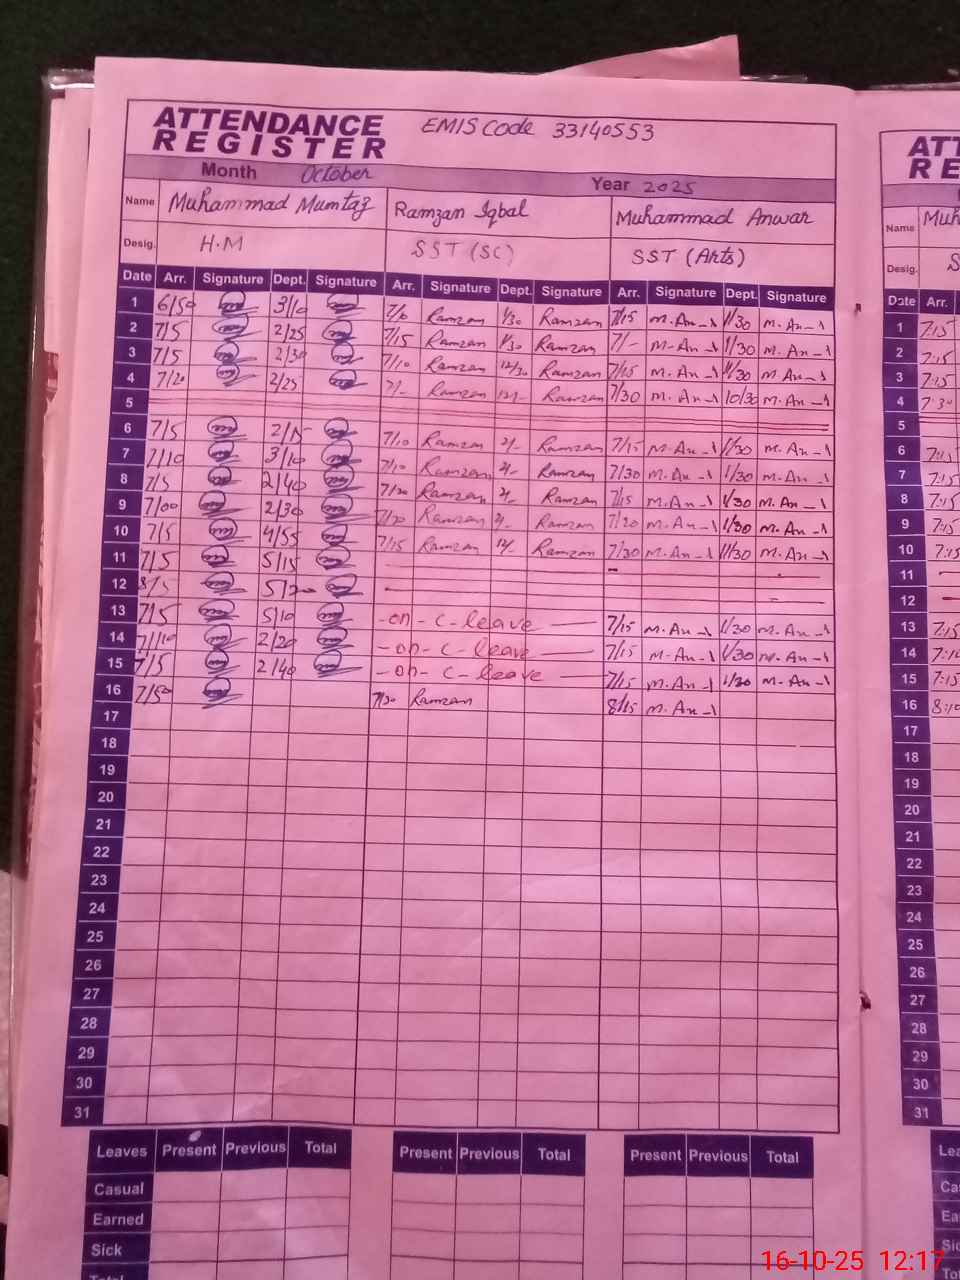 ATTENDANCE REGISTER EMIS Code 33140553
Month October Year 2025
Name Muhammad Mumtaz Ramzan Iqbal Muhammad Anwar
Desig. H.M SST (SC) SST (Arts)
Date Arr. Signature Dept. Signature Arr. Signature Dept. Signature Arr. Signature Dept. Signature
1 6/50 3/10 Ramzan 1/30 Ramzan 7/15 M.An 1/30 M.An
2 7/5 2/25 7/15 Ramzan 1/30 Ramzan 7/- M.An 1/30 M.An
3 7/5 2/30 7/10 Ramzan 12/30 Ramzan 7/15 M.An 11/30 M.An
4 7/20 2/25 7/- Ramzan 12/- Ramzan 7/30 M.An 10/30 M.An
5
6 7/5 2/15 7/10 Ramzan 2/- Ramzan 7/15 M.An 1/30 M.An
7 7/10 3/10 7/10 Ramzan 2/- Ramzan 7/30 M.An 1/30 M.An
8 7/5 2/40 Ramzan 2/- Ramzan 7/15 M.An 1/30 M.An
9 7/00 2/30 7/20 Ramzan 2/- Ramzan 7/20 M.An 1/30 M.An
10 7/5 4/55 7/15 Ramzan 12/- Ramzan 7/30 M.An 11/30 M.An
11 7/5 5/15
12 8/5
13 7/5 5/10 -on-c-leave 7/15 M.An 1/30 M.An
14 7/10 2/20 -on-c-leave 7/15 M.An 1/30 M.An
15 7/5 2/40 -on-c-leave 7/15 M.An 1/30 M.An
16 7/50 7/30 Ramzan 8/15 M.An
17
18
19
20
21
22
23
24
25
26
27
28
29
30
31
Leaves Present Previous Total Present Previous Total Present Previous Total
Casual
Earned
Sick
Total
ATT
RE
Name Muh
Desig. S
Date Arr.
1 7/15
2 7:15
3 7:15
4 7:30
5
6 7:15
7 7:15
8 7:15
9 7:15
10 7:15
11
12
13 7:15
14 7:10
15 7:15
16 8:10
17
18
19
20
21
22
23
24
25
26
27
28
29
30
31
Lea
Ca
Ea
Si
To
16-10-25 12:17